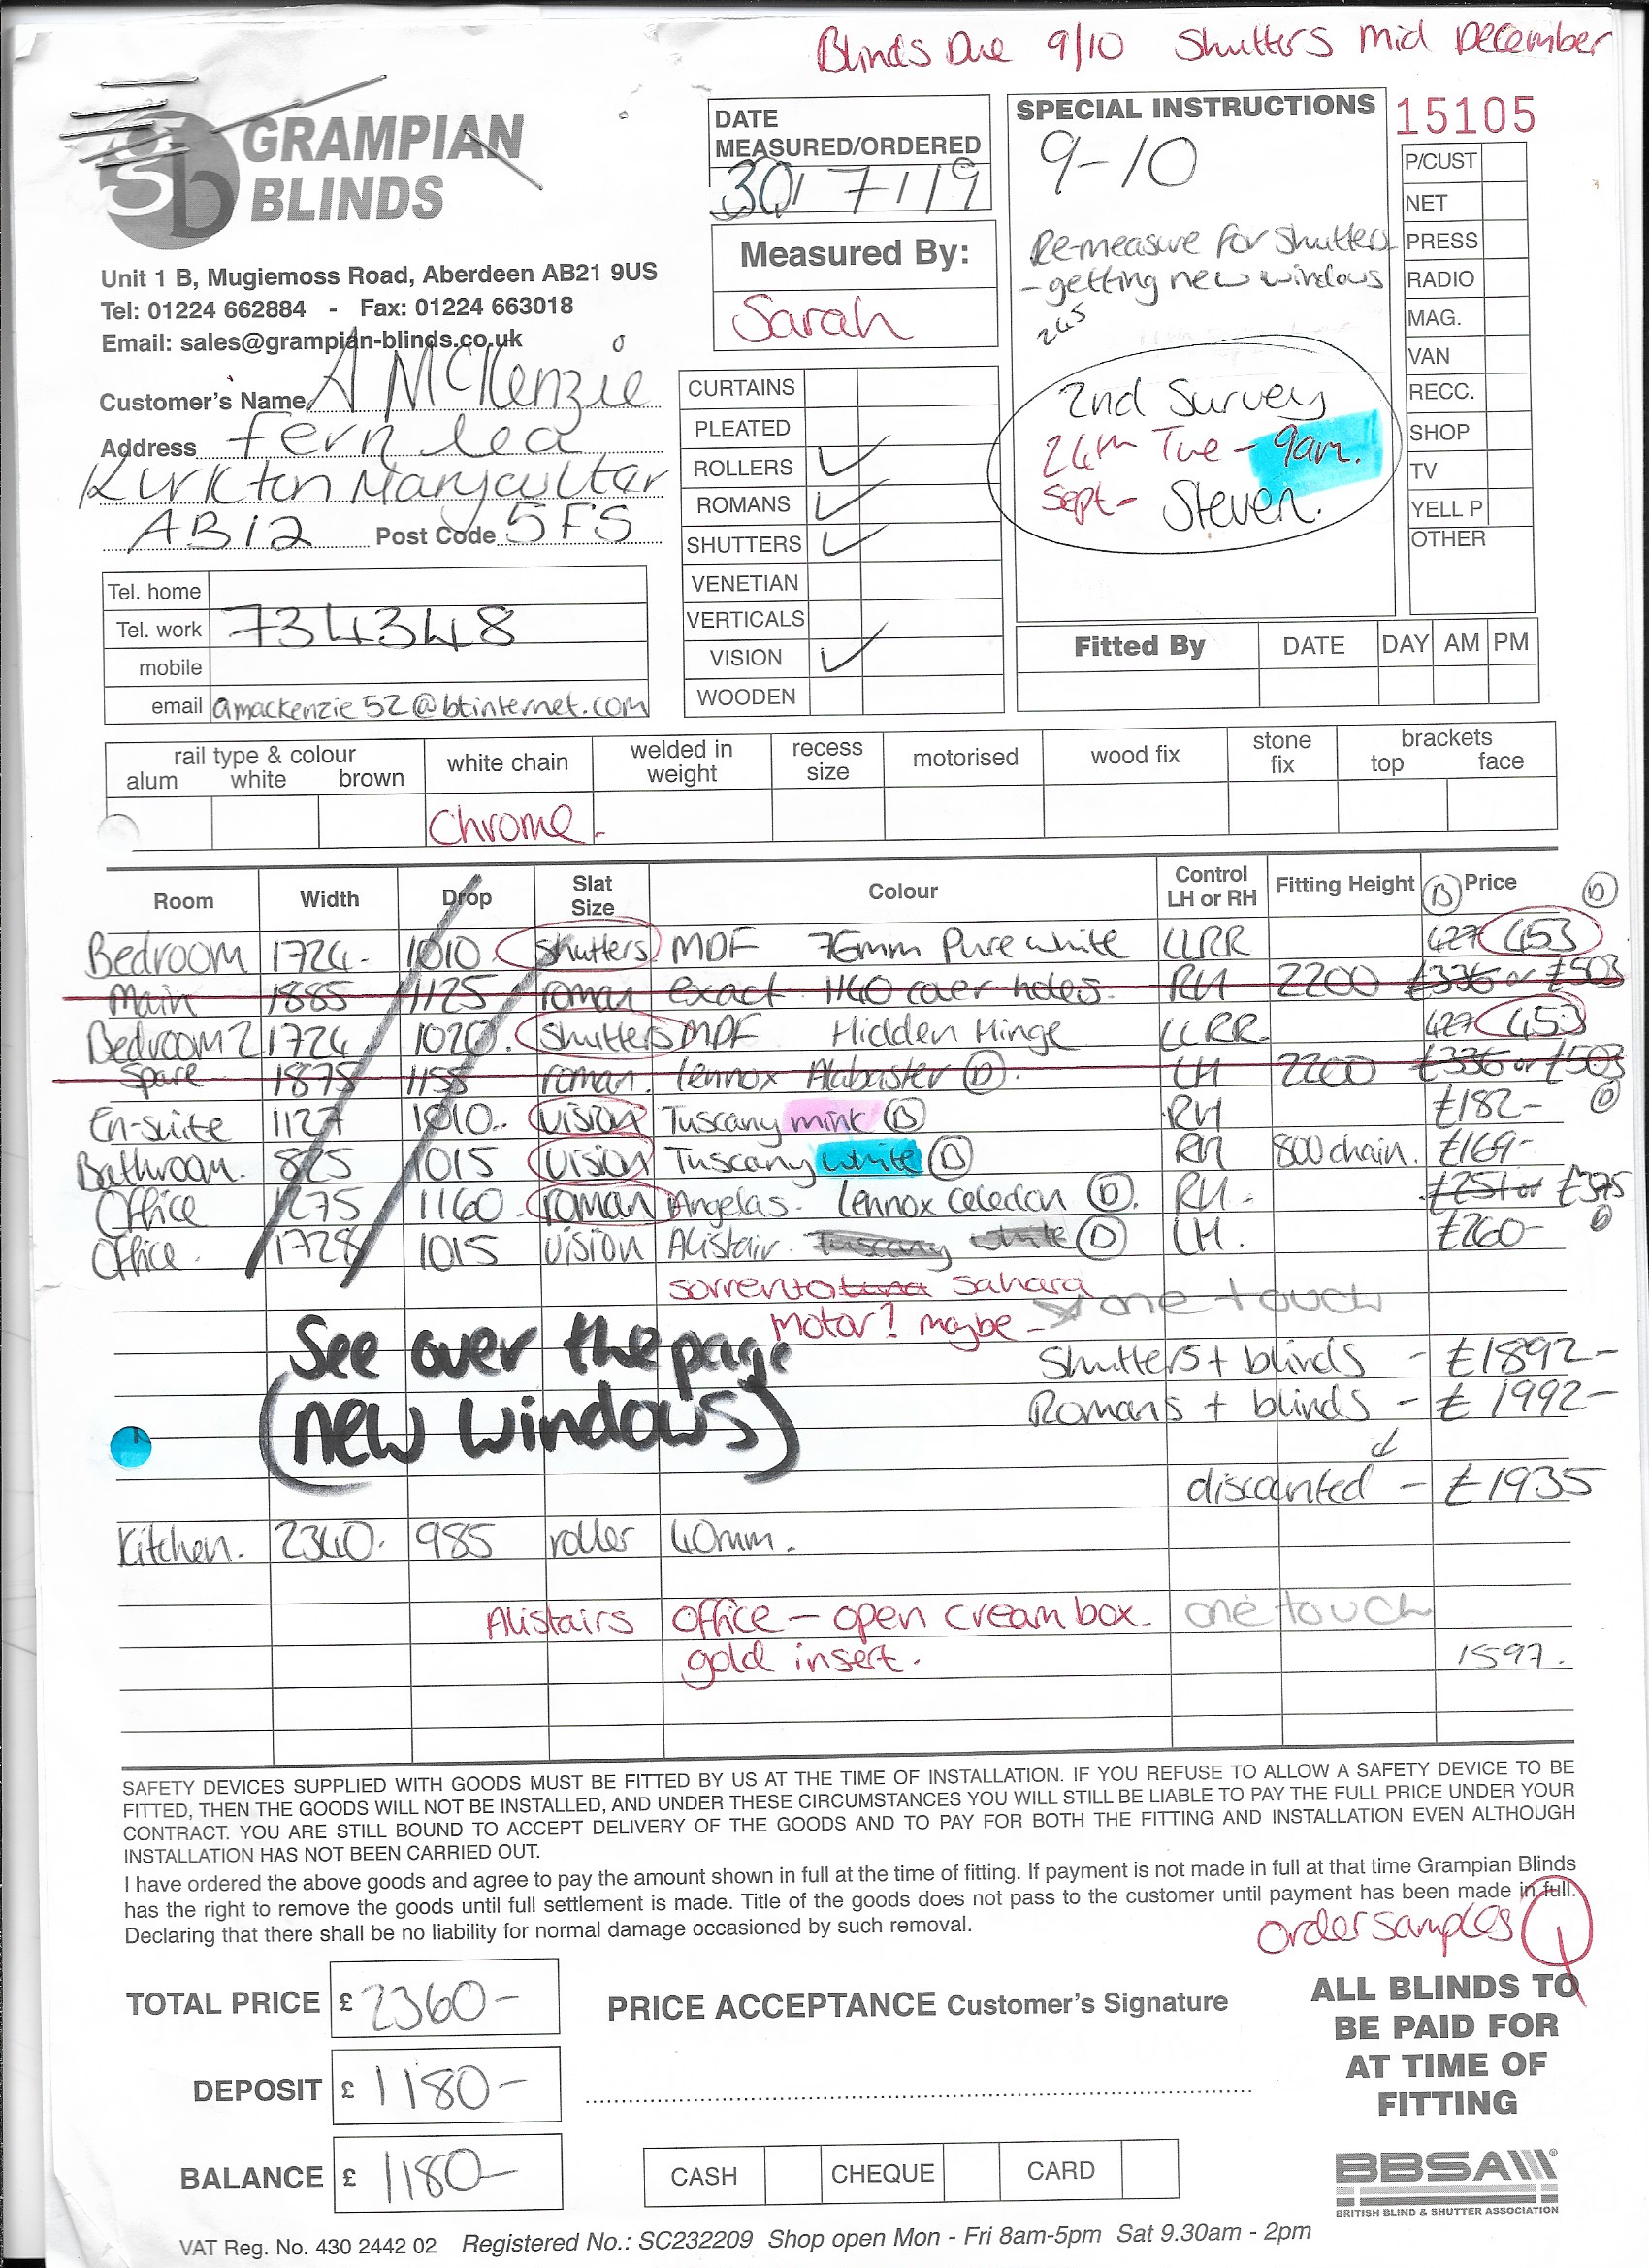 Blinds Due 9/10 Shutters mid December
GRAMPIAN
BLINDS
Unit 1 B, Mugiemoss Road, Aberdeen AB21 9US
Tel: 01224 662884 - Fax: 01224 663018
Email: sales@grampian-blinds.co.uk
Customer's Name A McKenzie
Address Fern lea
Kirkton Maryculter
AB12 Post Code 5FS
Tel. home
Tel. work 734348
mobile
email amackenzie52@btinternet.com
DATE
MEASURED/ORDERED
30/7/19
Measured By:
Sarah
CURTAINS
PLEATED
ROLLERS ✓
ROMANS ✓
SHUTTERS ✓
VENETIAN
VERTICALS
VISION ✓
WOODEN
SPECIAL INSTRUCTIONS
9-10
Re-measure for Shutters
- getting new windows
245
2nd Survey
24th Tue - 9am.
Sept - Steven.
15105
P/CUST
NET
PRESS
RADIO
MAG.
VAN
RECC.
SHOP
TV
YELL P
OTHER
Fitted By DATE DAY AM PM
rail type & colour white chain welded in weight recess size motorised wood fix stone fix brackets
alum white brown top face
Chrome.
Room Width Drop Slat Size Colour Control LH or RH Fitting Height (B) Price (D)
Bedroom 1724 1010 Shutters MDF 76mm Pure white LLRR 427 453
Main 1885 1125 roman exact 1140 over holes. RH 2200 £336 or £503
Bedroom 2 1724 1020 Shutters MDF Hidden Hinge LLRR 427 453
Spare 1875 1155 roman. Lennox Alabaster (D). LH 2200 £336 or £503
En-suite 1127 1010 vision Tuscany mink (B) RH £182- (D)
Bathroom. 825 1015 vision Tuscany white (B) RH 800 chain. £169-
Office 1275 1160 roman Angelas. Lennox Celedon (D). RH - £251 or £375
Office. 1728 1015 vision Alistair. Tuscany white (D) LH. £260-
sorrento sahara
motor? maybe - one touch
See over the page
(new windows)
Shutters + blinds - £1892-
Romans + blinds - £1992-
discounted - £1935
Kitchen. 2340. 985 roller 40mm.
Alistairs office - open cream box. one touch
gold insert. 1597.
SAFETY DEVICES SUPPLIED WITH GOODS MUST BE FITTED BY US AT THE TIME OF INSTALLATION. IF YOU REFUSE TO ALLOW A SAFETY DEVICE TO BE
FITTED, THEN THE GOODS WILL NOT BE INSTALLED, AND UNDER THESE CIRCUMSTANCES YOU WILL STILL BE LIABLE TO PAY THE FULL PRICE UNDER YOUR
CONTRACT. YOU ARE STILL BOUND TO ACCEPT DELIVERY OF THE GOODS AND TO PAY FOR BOTH THE FITTING AND INSTALLATION EVEN ALTHOUGH
INSTALLATION HAS NOT BEEN CARRIED OUT.
I have ordered the above goods and agree to pay the amount shown in full at the time of fitting. If payment is not made in full at that time Grampian Blinds
has the right to remove the goods until full settlement is made. Title of the goods does not pass to the customer until payment has been made in full.
Declaring that there shall be no liability for normal damage occasioned by such removal.
order samples
TOTAL PRICE £ 2360-
DEPOSIT £ 1180-
BALANCE £ 1180-
PRICE ACCEPTANCE Customer's Signature
CASH CHEQUE CARD
ALL BLINDS TO
BE PAID FOR
AT TIME OF
FITTING
BBSA
BRITISH BLIND & SHUTTER ASSOCIATION
VAT Reg. No. 430 2442 02 Registered No.: SC232209 Shop open Mon - Fri 8am-5pm Sat 9.30am - 2pm